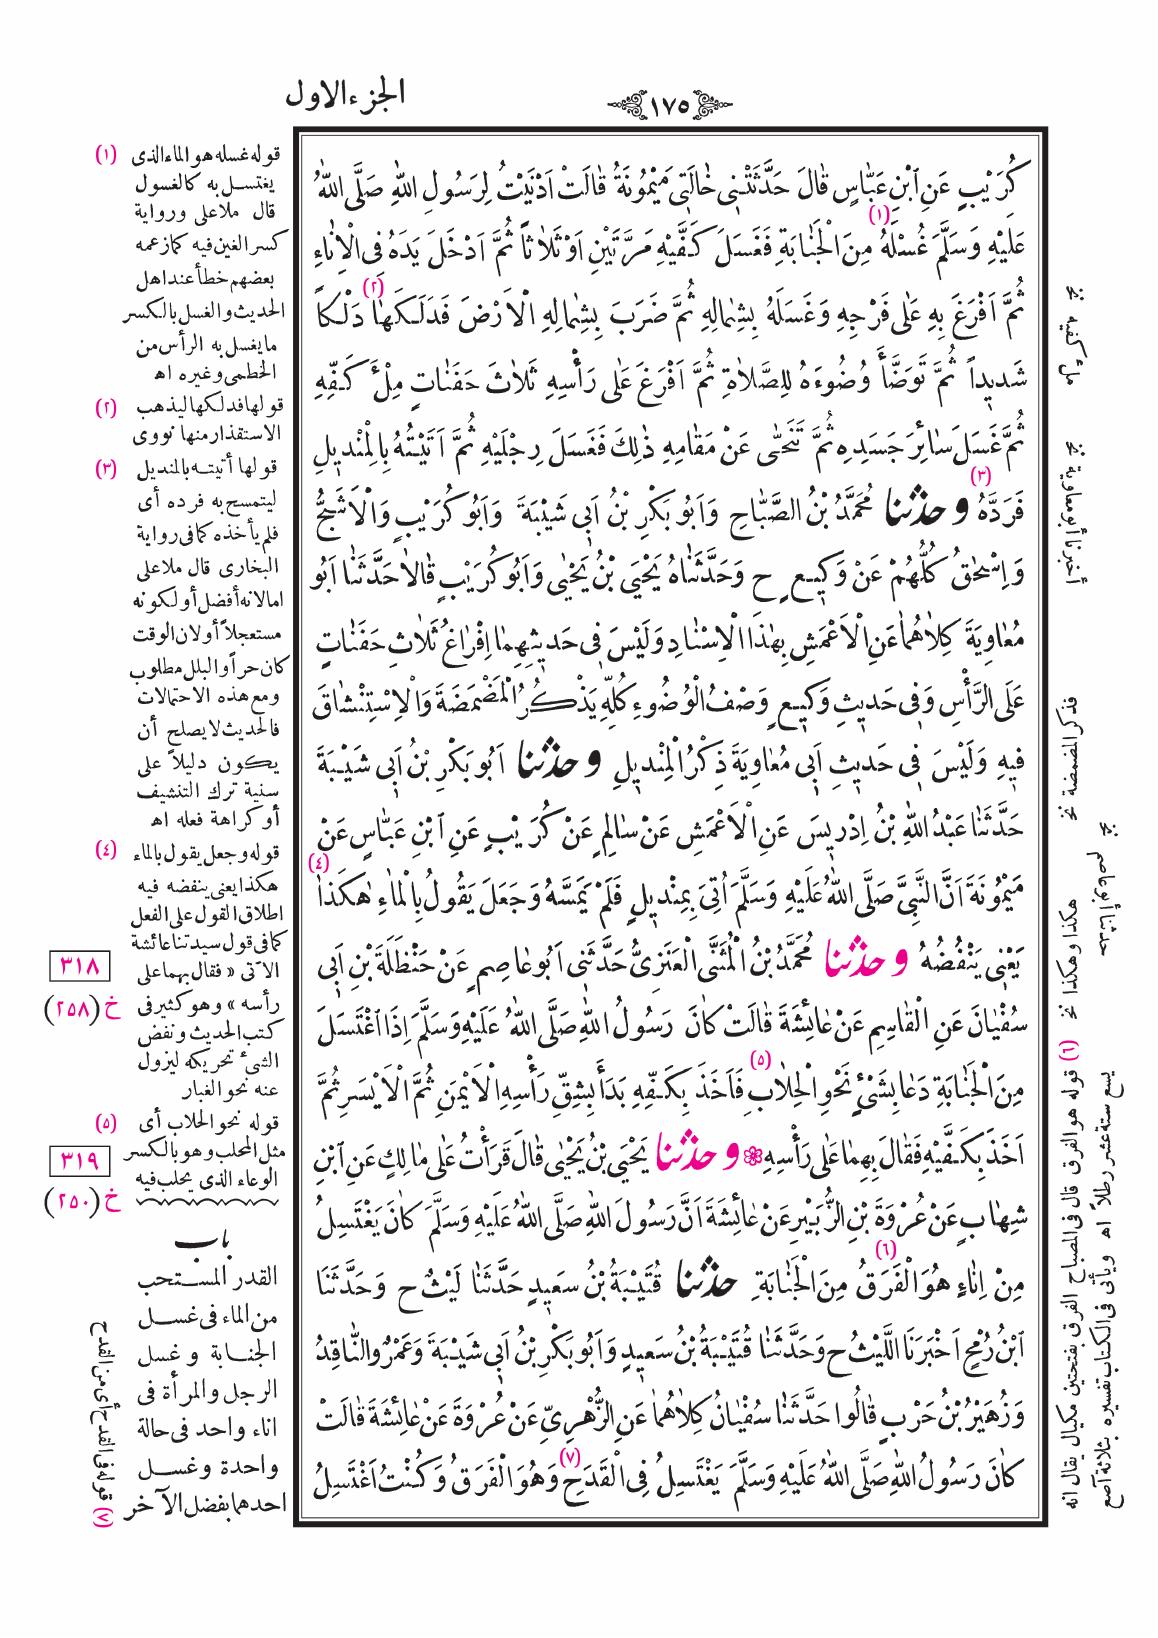 الجزء الاول
١٧٥
كُرَيْبٍ عَنِ ابْنِ عَبَّاسٍ قَالَ حَدَّثَتْنِى خَالَتِى مَيْمُونَةُ قَالَتْ اَدْنَيْتُ لِرَسُولِ اللّٰهِ صَلَّى اللّٰهُ
عَلَيْهِ وَسَلَّمَ غُسْلَهُ (١) مِنَ الْجَنَابَةِ فَغَسَلَ كَفَّيْهِ مَرَّتَيْنِ اَوْ ثَلَاثاً ثُمَّ اَدْخَلَ يَدَهُ فِى الْاِنَاءِ
ثُمَّ اَفْرَغَ بِهِ عَلٰى فَرْجِهِ وَغَسَلَهُ بِشِمَالِهِ ثُمَّ ضَرَبَ بِشِمَالِهِ الْاَرْضَ فَدَلَكَهَا (٢) دَلْكاً
شَدِيداً ثُمَّ تَوَضَّأَ وُضُوءَهُ لِلصَّلَاةِ ثُمَّ اَفْرَغَ عَلٰى رَأْسِهِ ثَلَاثَ حَفَنَاتٍ مِلْءَ كَفِّهِ
ثُمَّ غَسَلَ سَائِرَ جَسَدِهِ ثُمَّ تَنَحّٰى عَنْ مَقَامِهِ ذٰلِكَ فَغَسَلَ رِجْلَيْهِ ثُمَّ اَتَيْتُهُ بِالْمِنْدِيلِ
فَرَدَّهُ (٣) وحدثنا مُحَمَّدُ بْنُ الصَّبَّاحِ وَاَبُو بَكْرِ بْنُ اَبِى شَيْبَةَ وَاَبُو كُرَيْبٍ وَالْاَشَجُّ
وَاِسْحٰقُ كُلُّهُمْ عَنْ وَكِيعٍ ح وَحَدَّثَنَاهُ يَحْيَى بْنُ يَحْيٰى وَاَبُو كُرَيْبٍ قَالَا حَدَّثَنَا اَبُو
مُعَاوِيَةَ كِلَاهُمَا عَنِ الْاَعْمَشِ بِهٰذَا الْاِسْنَادِ وَلَيْسَ فِى حَدِيثِهِمَا اِفْرَاغُ ثَلَاثِ حَفَنَاتٍ
عَلَى الرَّأْسِ وَفِى حَدِيثِ وَكِيعٍ وَصْفُ الْوُضُوءِ كُلِّهِ يَذْكُرُ الْمَضْمَضَةَ وَالْاِسْتِنْشَاقَ
فِيهِ وَلَيْسَ فِى حَدِيثِ اَبِى مُعَاوِيَةَ ذِكْرُ الْمِنْدِيلِ وحدثنا اَبُو بَكْرِ بْنُ اَبِى شَيْبَةَ
حَدَّثَنَا عَبْدُ اللّٰهِ بْنُ اِدْرِيسَ عَنِ الْاَعْمَشِ عَنْ سَالِمٍ عَنْ كُرَيْبٍ عَنِ ابْنِ عَبَّاسٍ عَنْ
مَيْمُونَةَ اَنَّ النَّبِىَّ صَلَّى اللّٰهُ عَلَيْهِ وَسَلَّمَ اُتِىَ بِمِنْدِيلٍ فَلَمْ يَمَسَّهُ وَجَعَلَ يَقُولُ بِالْمَاءِ هٰكَذَا (٤)
يَعْنِى يَنْفُضُهُ وحدثنا مُحَمَّدُ بْنُ الْمُثَنَّى الْعَنَزِىُّ حَدَّثَنِى اَبُو عَاصِمٍ عَنْ حَنْظَلَةَ بْنِ اَبِى
سُفْيَانَ عَنِ الْقَاسِمِ عَنْ عَائِشَةَ قَالَتْ كَانَ رَسُولُ اللّٰهِ صَلَّى اللّٰهُ عَلَيْهِ وَسَلَّمَ اِذَا اغْتَسَلَ
مِنَ الْجَنَابَةِ دَعَا بِشَىْءٍ نَحْوِ الْحِلَابِ (٥) فَاَخَذَ بِكَفِّهِ بَدَأَ بِشِقِّ رَأْسِهِ الْاَيْمَنِ ثُمَّ الْاَيْسَرِ ثُمَّ
اَخَذَ بِكَفَّيْهِ فَقَالَ بِهِمَا عَلٰى رَأْسِهِ وحدثنا يَحْيَى بْنُ يَحْيٰى قَالَ قَرَأْتُ عَلٰى مَالِكٍ عَنِ ابْنِ
شِهَابٍ عَنْ عُرْوَةَ بْنِ الزُّبَيْرِ عَنْ عَائِشَةَ اَنَّ رَسُولَ اللّٰهِ صَلَّى اللّٰهُ عَلَيْهِ وَسَلَّمَ كَانَ يَغْتَسِلُ
مِنْ اِنَاءٍ هُوَ الْفَرَقُ (٦) مِنَ الْجَنَابَةِ حدثنا قُتَيْبَةُ بْنُ سَعِيدٍ حَدَّثَنَا لَيْثٌ ح وَحَدَّثَنَا
ابْنُ رُمْحٍ اَخْبَرَنَا اللَّيْثُ ح وَحَدَّثَنَا قُتَيْبَةُ بْنُ سَعِيدٍ وَاَبُو بَكْرِ بْنُ اَبِى شَيْبَةَ وَعَمْرٌو النَّاقِدُ
وَزُهَيْرُ بْنُ حَرْبٍ قَالُوا حَدَّثَنَا سُفْيَانُ كِلَاهُمَا عَنِ الزُّهْرِىِّ عَنْ عُرْوَةَ عَنْ عَائِشَةَ قَالَتْ
كَانَ رَسُولُ اللّٰهِ صَلَّى اللّٰهُ عَلَيْهِ وَسَلَّمَ يَغْتَسِلُ فِى الْقَدَحِ (٧) وَهُوَ الْفَرَقُ وَكُنْتُ اَغْتَسِلُ
(١) قوله غسله هو الماء الذى
يغتسل به كالغسول
قال ملا على ورواية
كسر الغين فيه كما زعمه
بعضهم خطأ عند اهل
الحديث والغسل بالكسر
ما يغسل به الرأس من
الخطمى وغيره اه
(٢) قولها فدلكها ليذهب
الاستقذار منها نووى
(٣) قولها أتيته بالمنديل
ليتمسح به فرده أى
فلم يأخذه كما فى رواية
البخارى قال ملا على
اما لانه أفضل أو لكونه
مستعجلاً أو لان الوقت
كان حراً والبلل مطلوب
ومع هذه الاحتمالات
فالحديث لا يصلح أن
يكون دليلاً على
سنية ترك التنشيف
أو كراهة فعله اه
(٤) قوله وجعل يقول بالماء
هكذا يعنى ينفضه فيه
اطلاق القول على الفعل
كما فى قول سيدتنا عائشة
الآتى « فقال بهما على
رأسه » وهو كثير فى
كتب الحديث ونفض
الشئ تحريكه ليزول
عنه نحو الغبار
(٥) قوله نحو الحلاب أى
مثل المحلب وهو بالكسر
الوعاء الذى يحلب فيه
٣١٨
خ (٢٥٨)
٣١٩
خ (٢٥٠)
باب
القدر المستحب
من الماء فى غسل
الجنابة وغسل
الرجل والمرأة فى
اناء واحد فى حالة
واحدة وغسل
احدهما بفضل الآخر
(٧) قوله فى القدح أى من القدح
ملء كفيه نخ
أخبرنا أبو معاوية نخ
فذكر المضمضة نخ
حدثنا أبو عاصم نخ
هكذا وهكذا نخ
(٦) قوله هو الفرق قال فى المصباح الفرق بفتحتين مكيال يقال انه
يسع ستة عشر رطلاً اه ويأتى فى الكتاب تفسيره بثلاثة آصع